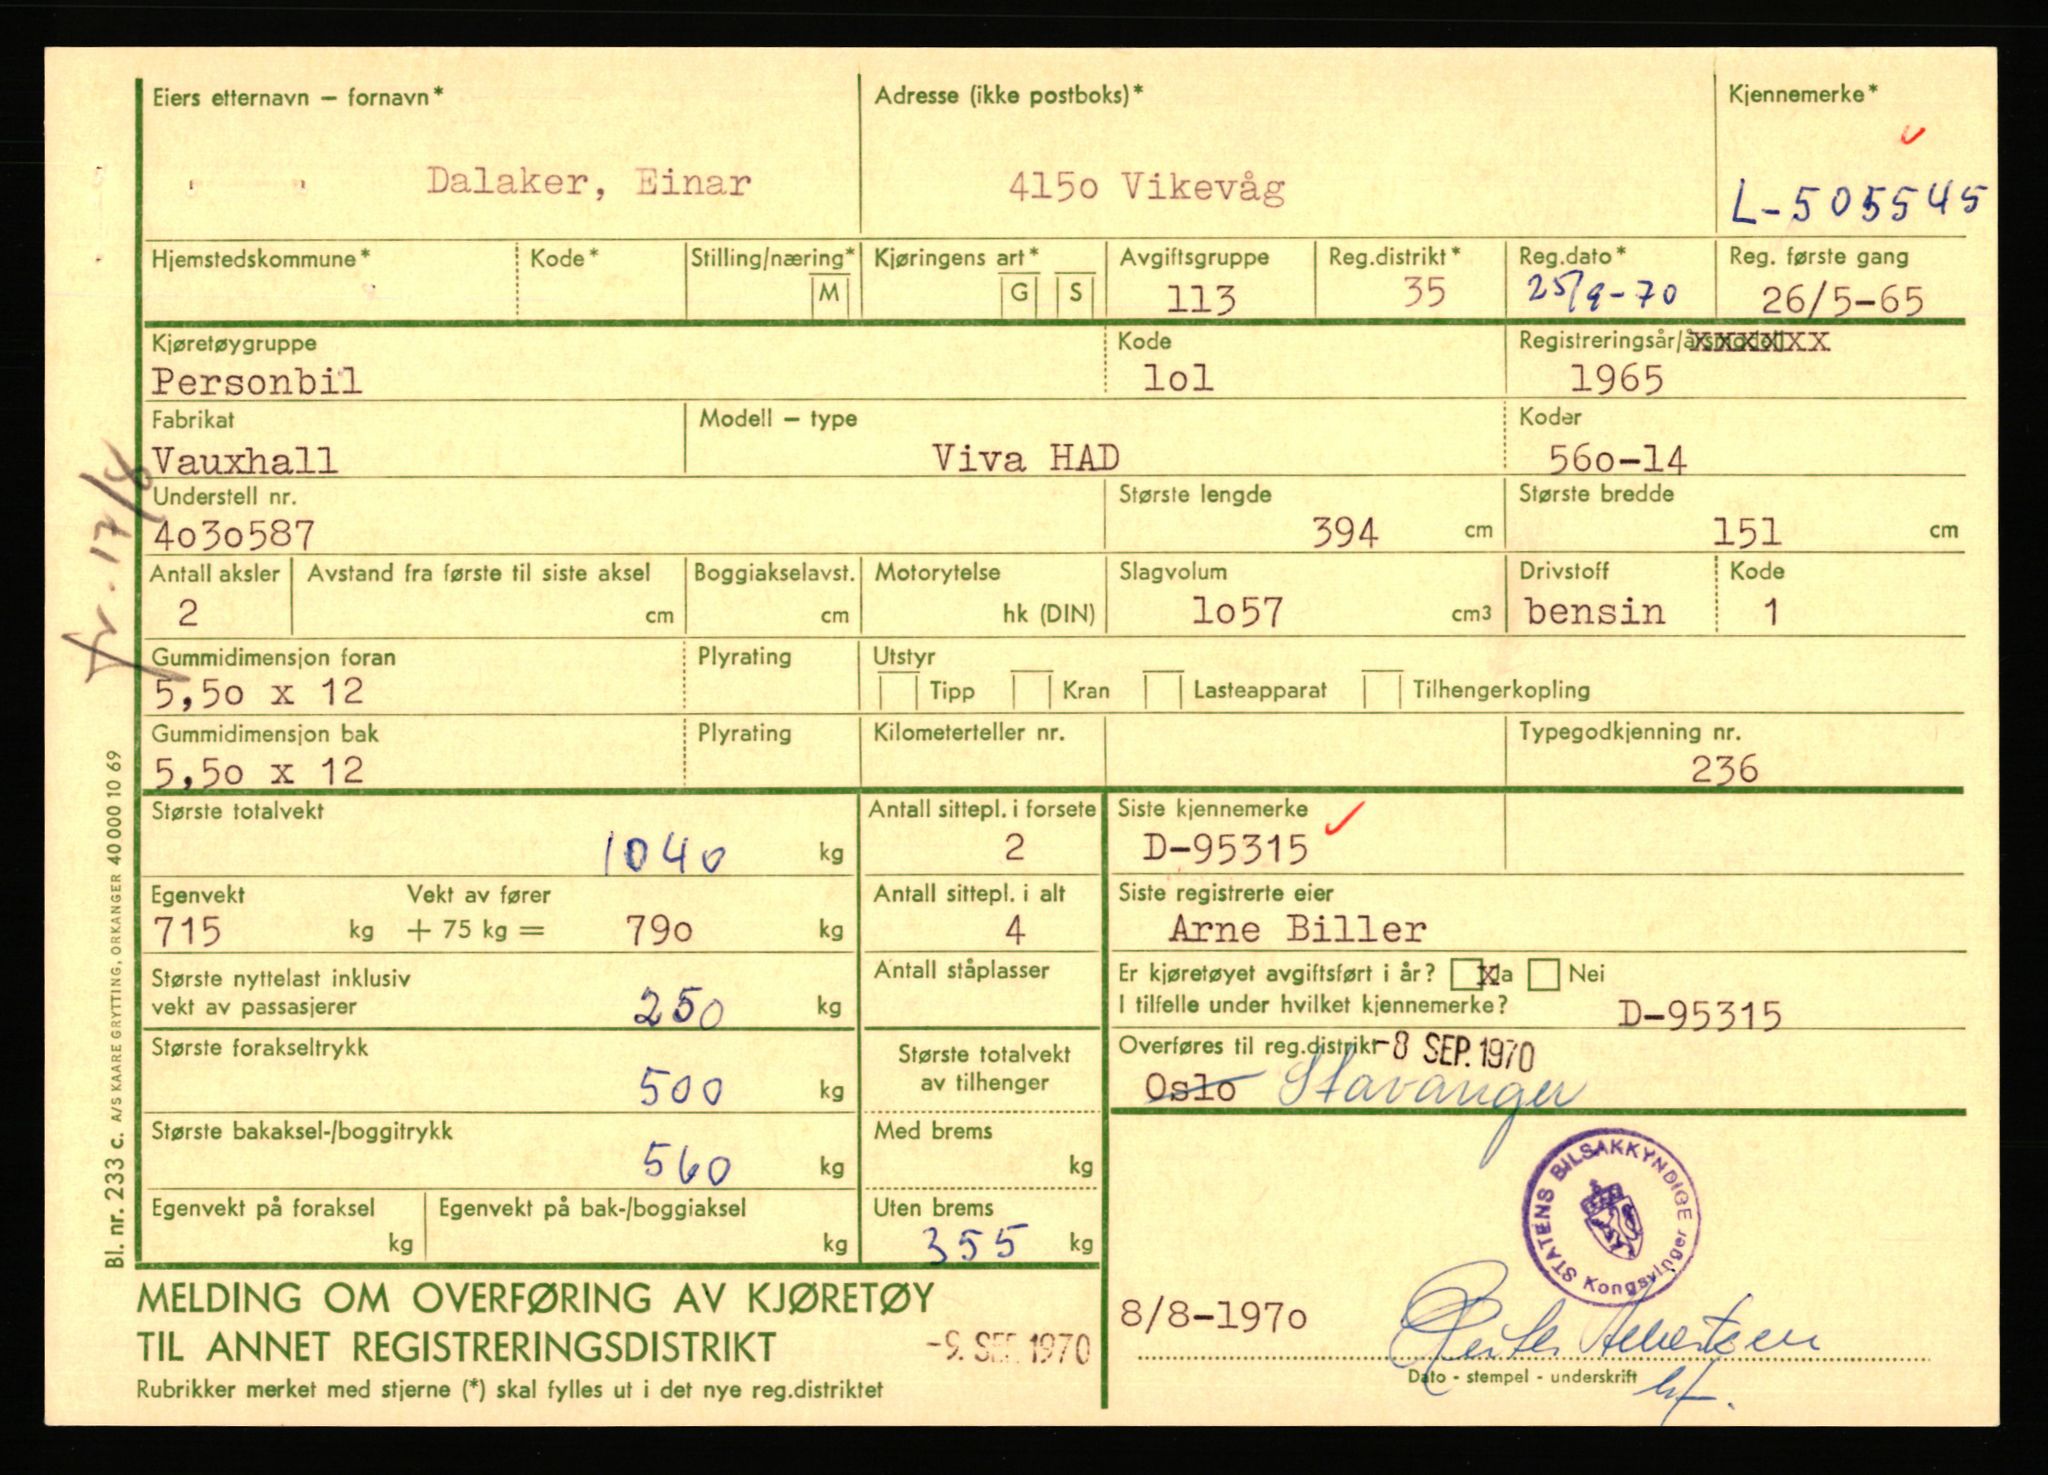 Eiers etternavn – fornavn* Adresse (ikke postboks)* Kjennemerke*
Dalaker, Einar 4150 Vikevåg L-505545
Hjemstedskommune* Kode* Stilling/næring* Kjøringens art* Avgiftsgruppe Reg.distrikt* Reg.dato* Reg. første gang
M G S 113 35 25/9-70 26/5-65
Kjøretøygruppe Kode Registreringsår/årsmodell
Personbil 1o1 1965
Fabrikat Modell – type Koder
Vauxhall Viva HAD 56o-14
Understell nr. Største lengde Største bredde
4o3o587 394 cm 151 cm
Antall aksler Avstand fra første til siste aksel Boggiakselavst. Motorytelse Slagvolum Drivstoff Kode
2 cm cm hk (DIN) 1o57 cm3 bensin 1
Gummidimensjon foran Plyrating Utstyr
5,5o x 12 Tipp Kran Lasteapparat Tilhengerkopling
Gummidimensjon bak Plyrating Kilometerteller nr. Typegodkjenning nr.
5,5o x 12 236
Største totalvekt Antall sittepl. i forsete Siste kjennemerke
1040 kg 2 D-95315
Egenvekt Vekt av fører Antall sittepl. i alt Siste registrerte eier
715 kg + 75 kg = 79o kg 4 Arne Biller
Største nyttelast inklusiv Antall ståplasser Er kjøretøyet avgiftsført i år? x Ja Nei
vekt av passasjerer 250 kg I tilfelle under hvilket kjennemerke? D-95315
Største forakseltrykk Største totalvekt Overføres til reg.distrikt -8 SEP. 1970
500 kg av tilhenger Oslo Stavanger
Største bakaksel-/boggitrykk Med brems
560 kg kg
Egenvekt på foraksel Egenvekt på bak-/boggiaksel Uten brems
kg kg 355 kg
STATENS BILSAKKYNDIGE
Kongsvinger
MELDING OM OVERFØRING AV KJØRETØY
8/8-197o
TIL ANNET REGISTRERINGSDISTRIKT -9. SEP. 1970
Dato - stempel - underskrift
Rubrikker merket med stjerne (*) skal fylles ut i det nye reg.distriktet
Bl. nr. 233 c. A/S KAARE GRYTTING, ORKANGER 40 000 10 69
fr. 17/8